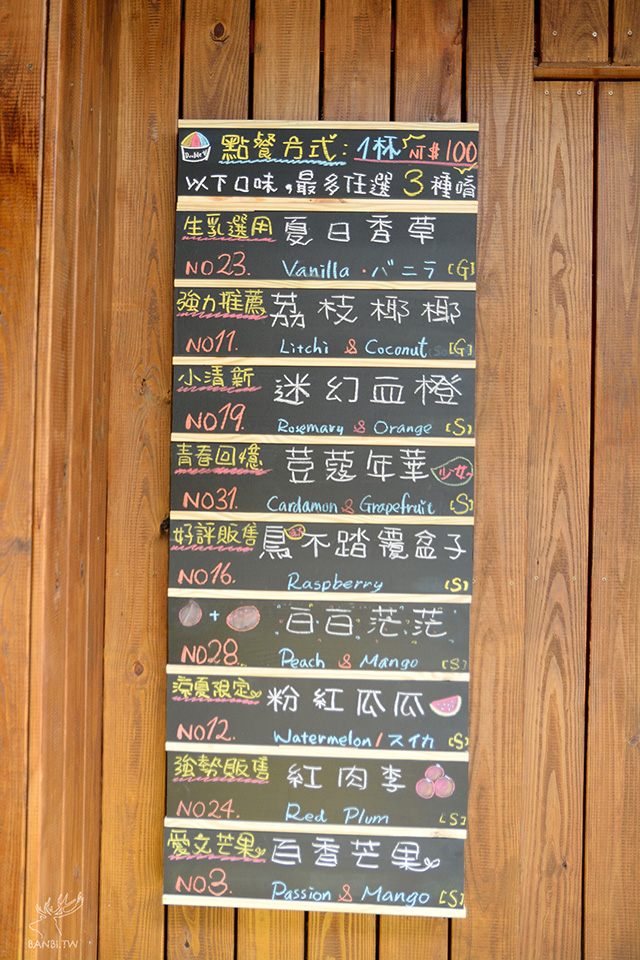 Double V 點餐方式：1杯 NT$100
以下口味，最多任選3種唷
生乳選用 夏日香草
NO23. Vanilla・バニラ [G]
強力推薦 荔枝椰椰
NO11. Litchi & Coconut [G]
小清新 迷幻血橙
NO19. Rosemary & Orange [S]
青春回憶 荳蔻年華 少女
NO31. Cardamon & Grapefruit [S]
好評販售 鳥不踏覆盆子
NO16. Raspberry [S]
+ 百百茫茫
NO28. Peach & Mango [S]
涼夏限定 粉紅瓜瓜
NO12. Watermelon/スイカ [S]
強勢販售 紅肉李
NO24. Red Plum [S]
愛文芒果 百香芒果
NO3. Passion & Mango [S]
BANBI.TW